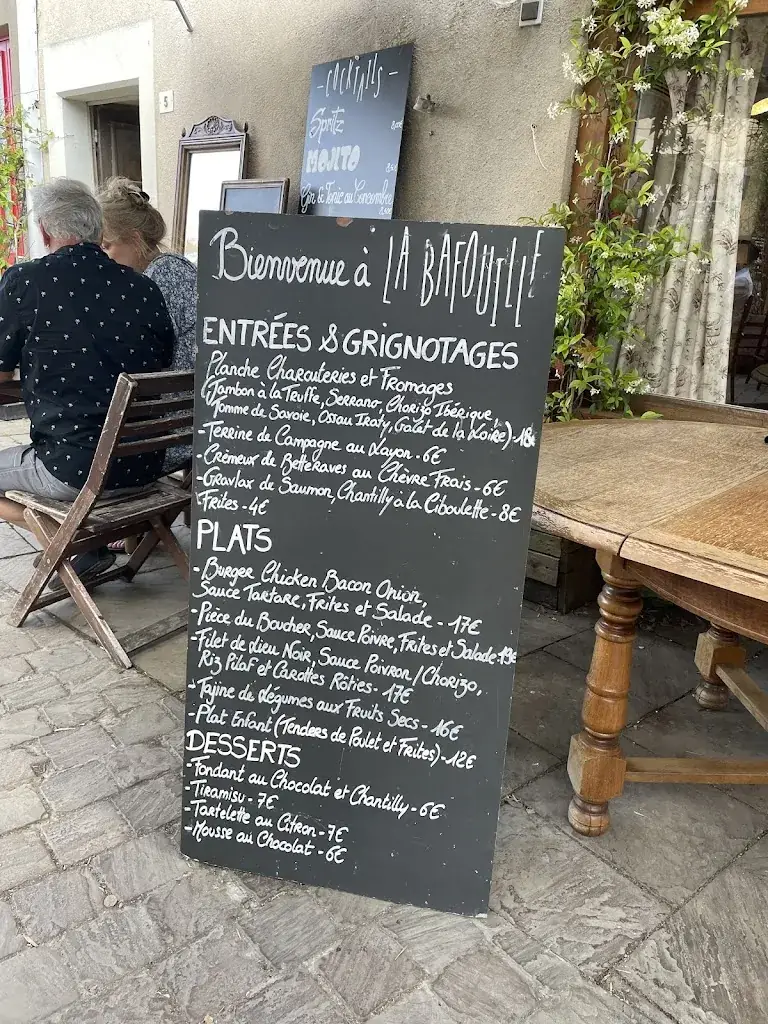 5
- COCKTAILS -
Spritz
MOJITO
Gin & Tonic au Concombre
Bienvenue à LA BAFOUILLE
ENTRÉES & GRIGNOTAGES
Planche Charcuteries et Fromages
(Jambon à la Truffe, Serrano, Chorizo Ibérique,
Tomme de Savoie, Ossau Iraty, Galet de la Loire) - 18€
- Terrine de Campagne au Layon - 6€
- Crémeux de Betteraves au Chèvre Frais - 6€
- Gravlax de Saumon, Chantilly à la Ciboulette - 8€
Frites - 4€
PLATS
- Burger Chicken Bacon Onion,
Sauce Tartare, Frites et Salade - 17€
- Pièce du Boucher, Sauce Poivre, Frites et Salade 19€
- Filet de Lieu Noir, Sauce Poivron / Chorizo,
Riz Pilaf et Carottes Rôties - 17€
- Tajine de Légumes aux Fruits Secs - 16€
- Plat Enfant (Tenders de Poulet et Frites) - 12€
DESSERTS
- Fondant au Chocolat et Chantilly - 6€
- Tiramisu - 7€
- Tartelette au Citron - 7€
- Mousse au Chocolat - 6€